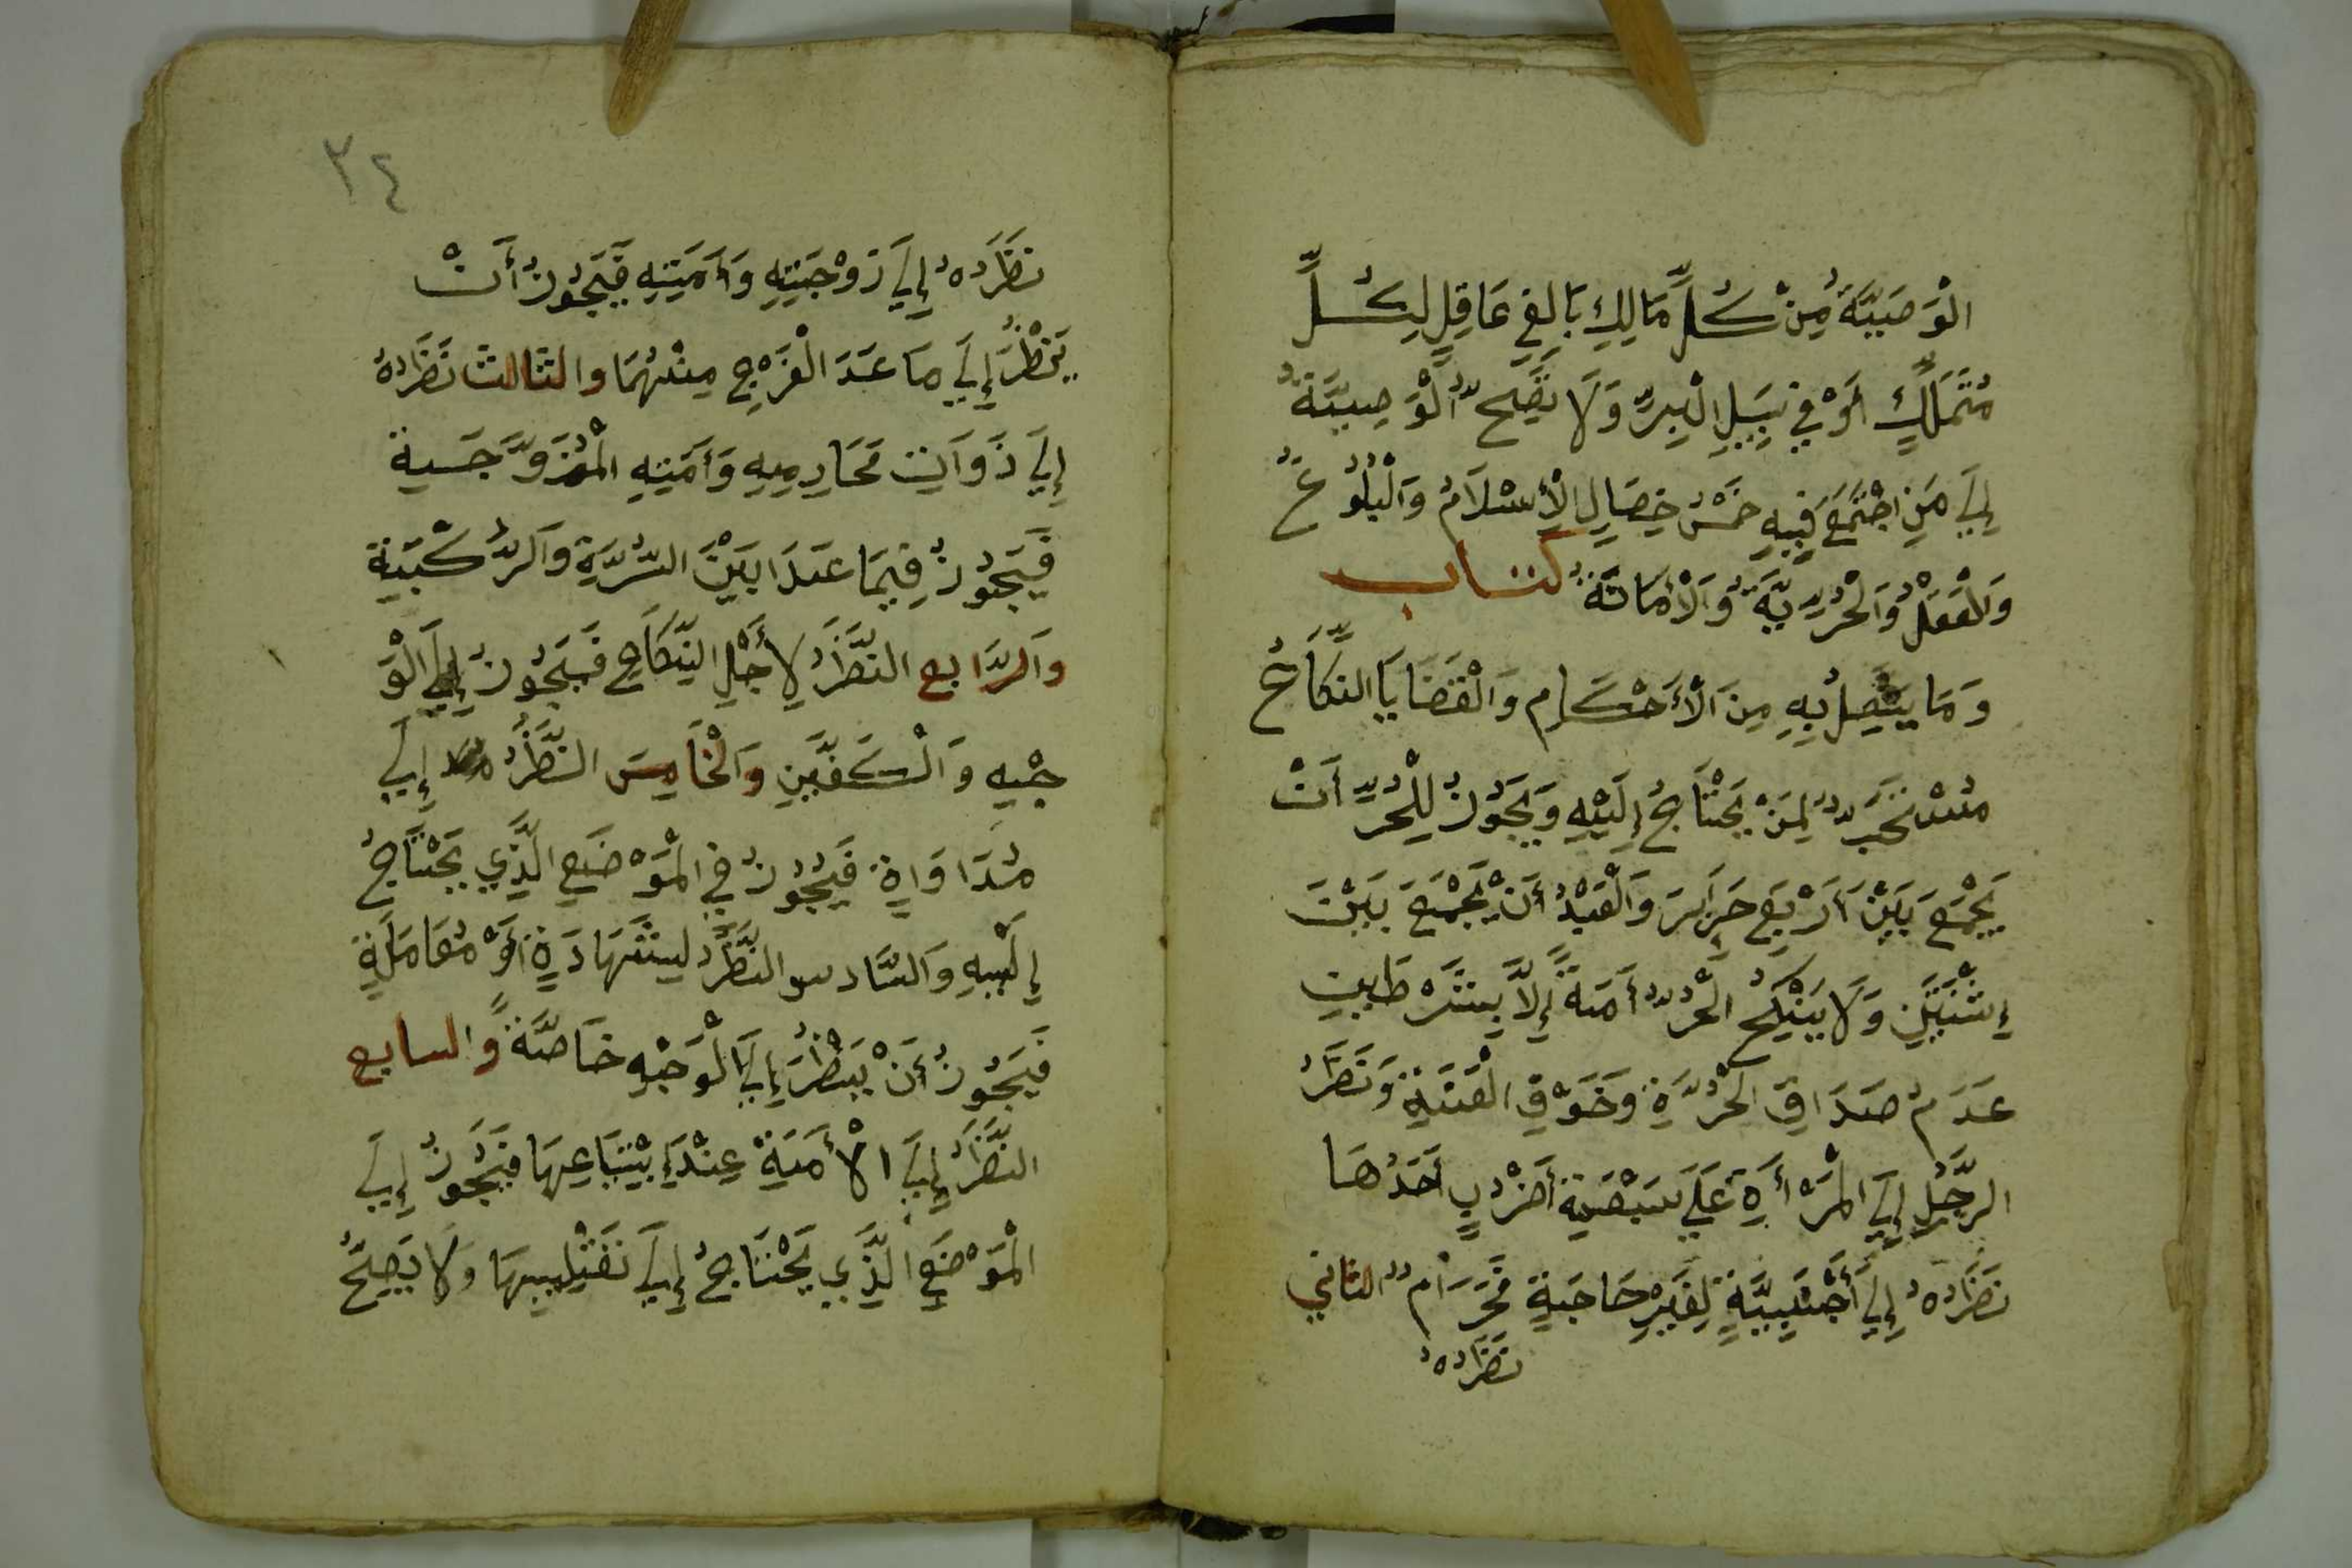 الْوَصِيَّةُ مِنْ كُلِّ مَالِكٍ بَالِغٍ عَاقِلٍ لِكُلِّ
مُتَمَلِّكٍ أَوْ فِي سَبِيلِ الْبِرِّ وَلَا تَصِحُّ الْوَصِيَّةُ
إِلَي مَنِ اجْتَمَعَ فِيهِ خَمْسُ خِصَالٍ الْإِسْلَامُ وَالْبُلُوغُ
وَالْعَقْلُ وَالْحُرِّيَّةُ وَالْأَمَانَةُ كتاب
وَمَا يَتَّصِلُ بِهِ مِنَ الْأَحْكَامِ وَالْقَضَايَا النِّكَاحُ
مُسْتَحَبٌّ لِمَنْ يَحْتَاجُ إِلَيْهِ وَيَجُوزُ لِلْحُرِّ أَنْ
يَجْمَعَ بَيْنَ أَرْبَعِ حَرَايِرَ وَالْعَبْدُ أَنْ يَجْمَعَ بَيْنَ
إِثْنَيْنِ وَلَا يَنْكِحُ الْحُرُّ أَمَةً إِلَّا بِشَرْطَيْنِ
عَدَمُ صَدَاقِ الْحُرَّةِ وَخَوْفِ الْعَنَتِ وَنَظَرُ
الرَّجُلِ إِلَي الْمَرْأَةِ عَلَي سَبْعَةِ أَضْرُبٍ أَحَدُهَا
نَظَرُهُ إِلَي أَجْنَبِيَّةٍ لِغَيْرِ حَاجَةٍ مُحَرَّمٌ الثاني
نَظَرُهُ
٣٤
نَظَرُهُ إِلَي زَوْجَتِهِ وَأَمَتِهِ فَيَجُوزُ أَنْ
يَنْظُرَ إِلَي مَا عَدَ الْفَرْجِ مِنْهُمَا والثالث نَظَرُهُ
إِلَي ذَوَاتِ مَحَارِمِهِ وَأَمَتِهِ الْمُزَوَّجَةِ
فَيَجُوزُ فِيمَا عَدَا بَيْنَ السُّرَّةِ وَالرُّكْبَةِ
وَالرَّابع النَّظَرُ لِأَجْلِ النِّكَاحِ فَيَجُوزُ إِلَي الْوَ
جْهِ وَالْكَفَّيْنِ وَالْخَامِسَ النَّظَرُ إِلَي
مُدَاوَاةٍ فَيَجُوزُ فِي الْمَوْضِعِ الَّذِي يَحْتَاجُ
إِلَيْهِ وَالسَّادس النَّظَرُ لِشَهَادَةٍ أَوْ مُعَامَلَةٍ
فَيَجُوزُ أَنْ يَنْظُرَ إِلَي الْوَجْهِ خَاصَّةً وَالسابع
النَّظَرُ إِلَي الْأَمَةِ عِنْدَ إِبْتِيَاعِهَا فَيَجُوزُ إِلَي
الْمَوْضِعِ الَّذِي يَحْتَاجُ إِلَي تَقْلِيبِهَا وَلَا يَصِحُّ